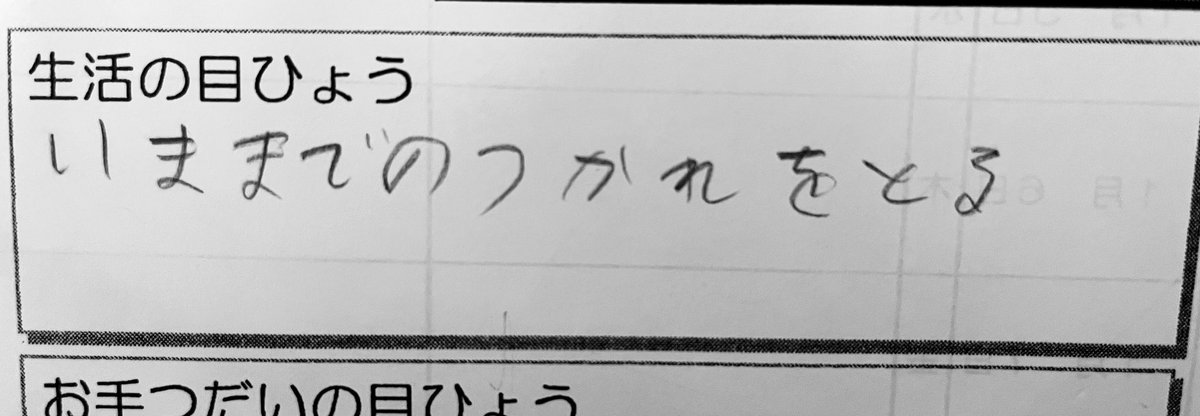 生活の目ひょう
いままでのつかれをとる
お手つだいの目ひょう